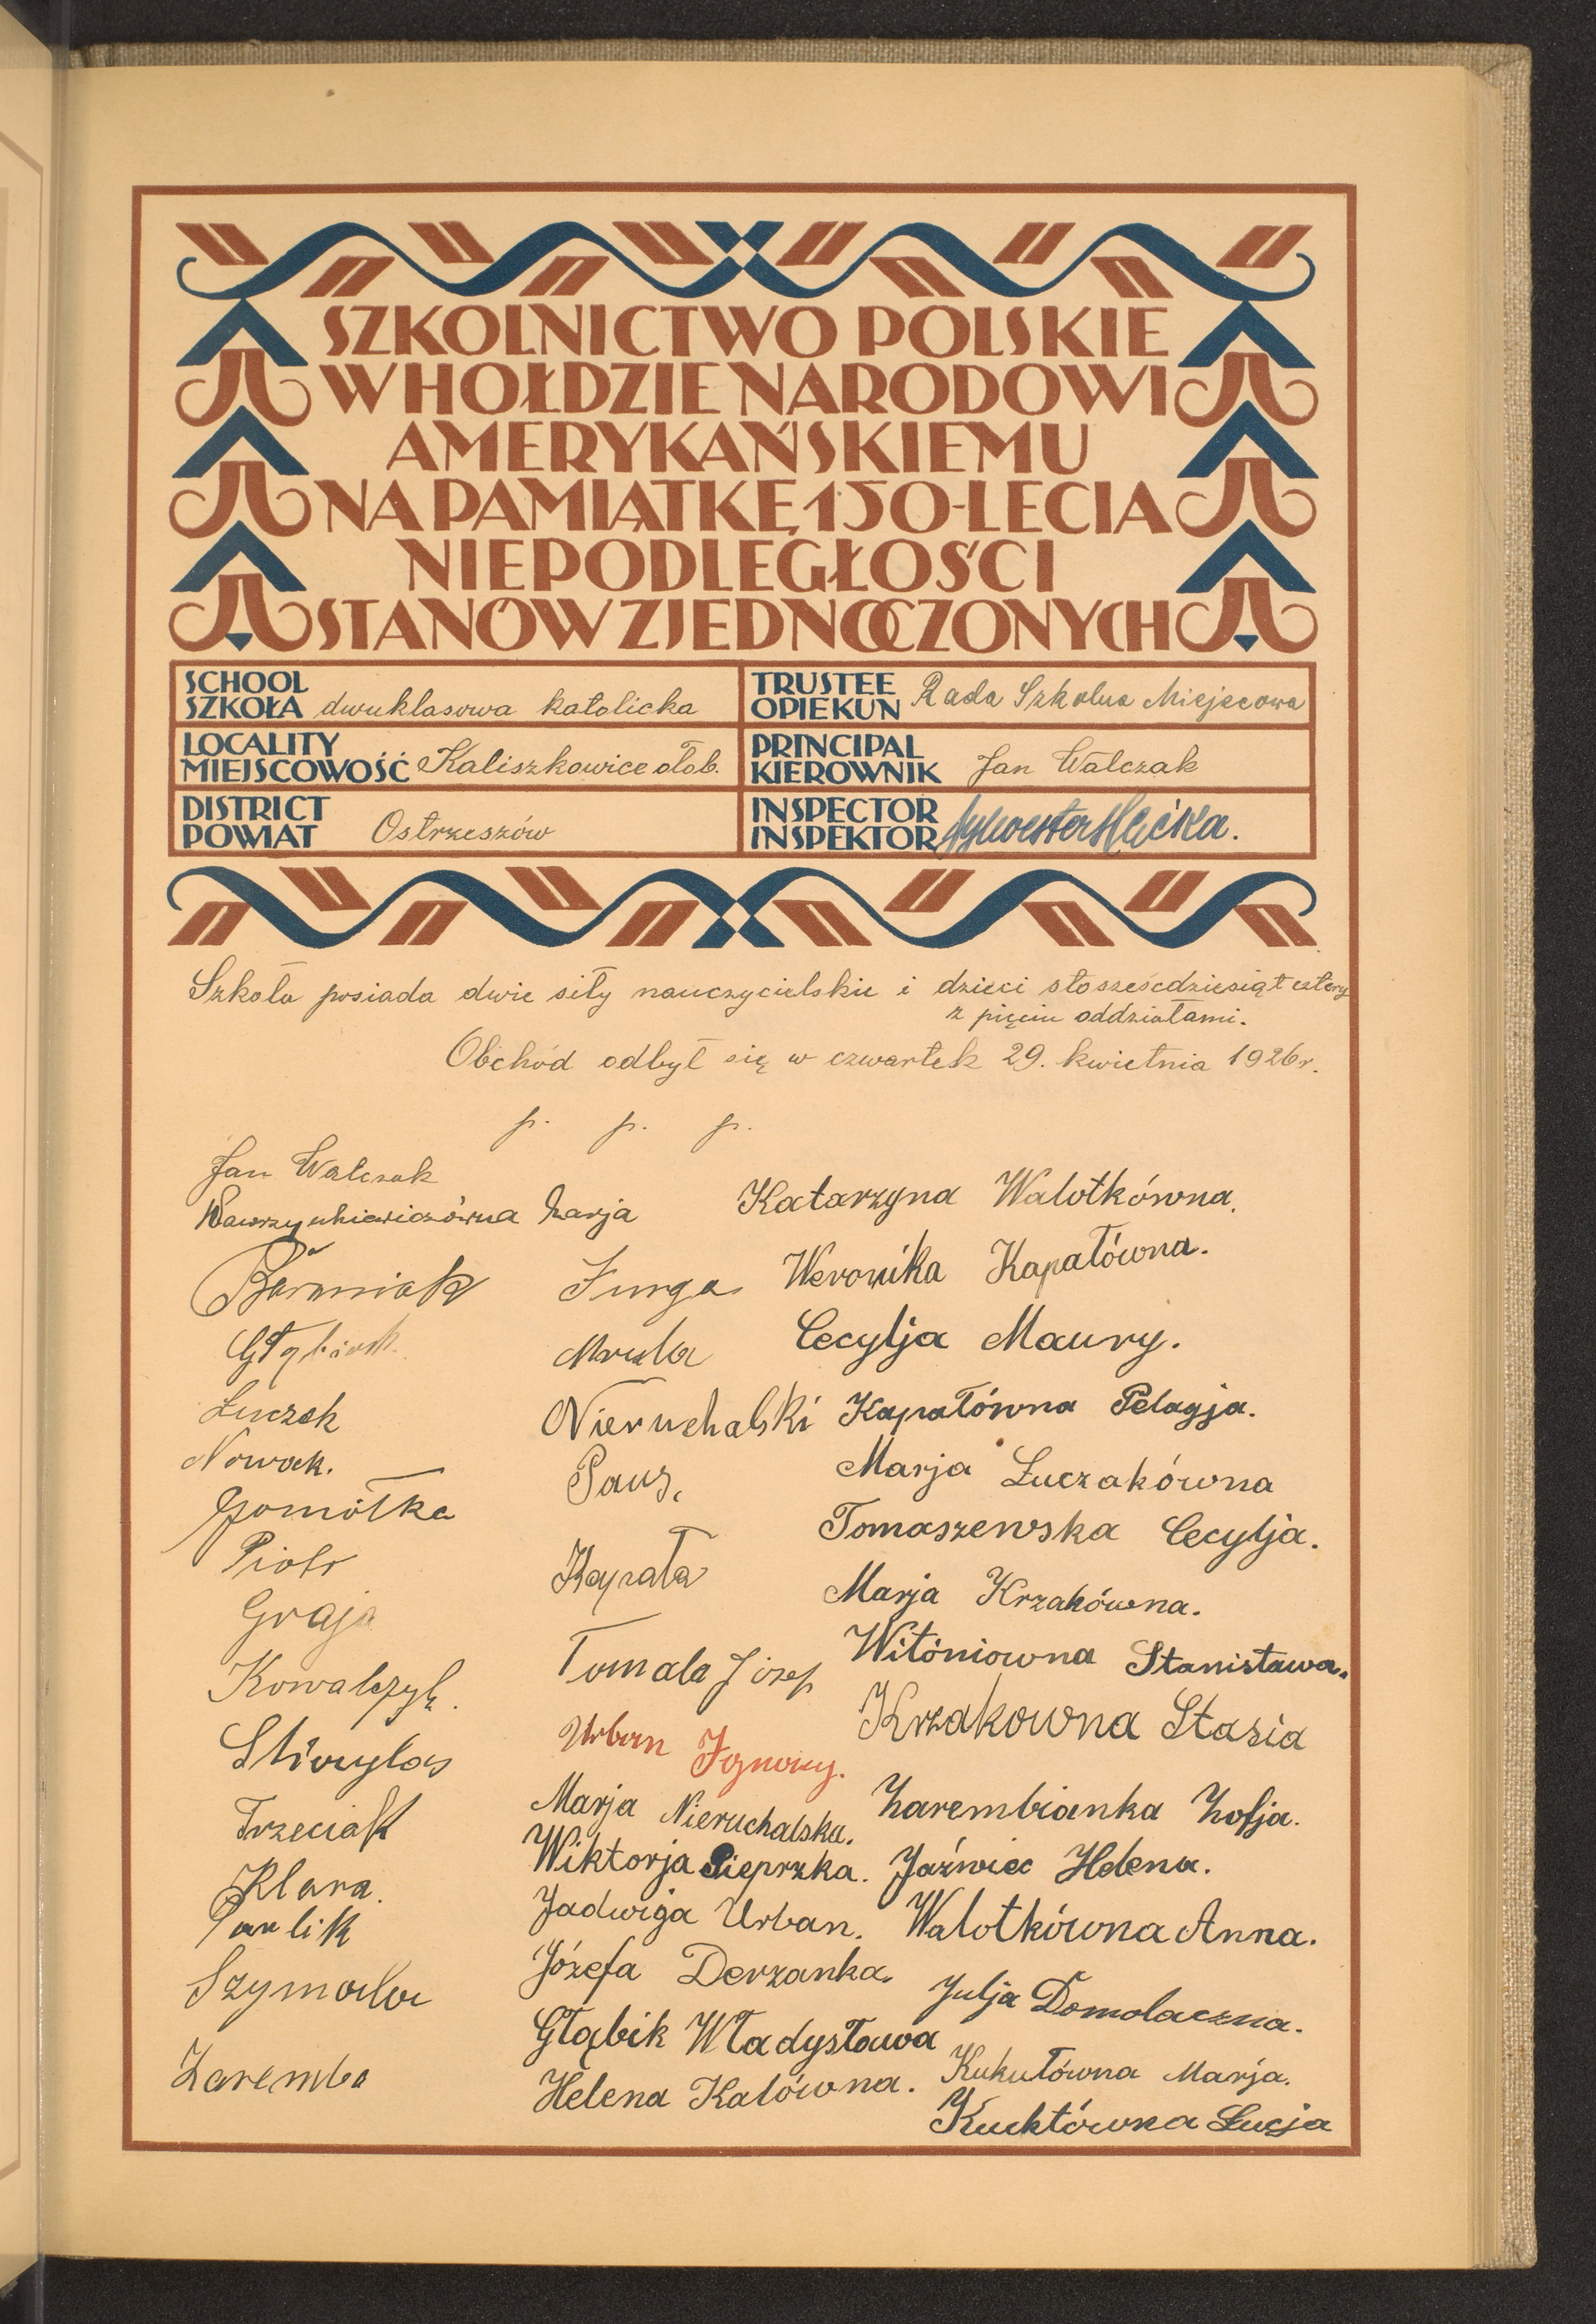 SZKOLNICTWO POLSKIE
W HOŁDZIE NARODOWI
AMERYKAŃSKIEMU
NA PAMIĄTKĘ 150-LECIA
NIEPODLEGŁOŚCI
STANÓW ZJEDNOCZONYCH
SCHOOL
SZKOŁA dwuklasowa katolicka
TRUSTEE
OPIEKUN Rada Szkolna Miejscowa
LOCALITY
MIEJSCOWOŚĆ Kaliszkowice ołob.
PRINCIPAL
KIEROWNIK Jan Walczak
DISTRICT
POWIAT Ostrzeszów
INSPECTOR
INSPEKTOR Sylwester
Szkoła posiada dwie siły nauczycielskie i dzieci stosześćdziesiąt cztery
z pięciu oddziałami.
Obchód odbył się w czwartek 29. kwietnia 1926r.
p. p. p.
Jan Walczak
Wawrzynkiewiczówna Marja
Nowak.
Gomółka
Piotr
Graja
Kowalczyk.
Trzeciak
Klara.
Pawlik
Szymała
Zaremba
Furga
Mrula
Nieruchalski
Paus.
Kapała
Tomala Józef
Urban Ignacy.
Marja Nieruchalska.
Wiktorja Pieprzka.
Jadwiga Urban.
Józefa Derzanka.
Głąbik Władysława
Helena Kałówna.
Katarzyna Walotkówna.
Weronika Kapałówna.
Cecylja Maury.
Kapałówna Pelagja.
Marja Łuczakówna
Tomaszewska Cecylja.
Marja Krzakówna.
Witóniowna Stanisława.
Krzakowna Stasia
Zarembianka Zofja.
Jaźwiec Helena.
Walotkówna Anna.
Julja Domolaczna.
Kukułówna Marja.
Kucktówna Łucja